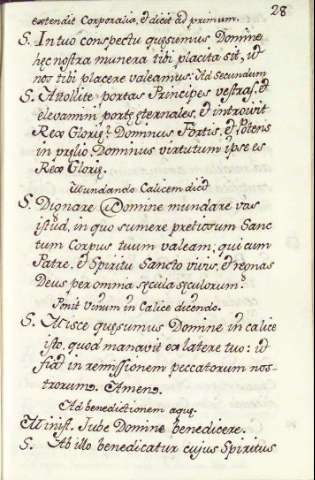 28
extendit Corporalia, et dicit ad primum.
S. In tuo conspectu quęsumus Domine
hęc nostra munera tibi placita sit, ut
nos tibi placere valeamus. Ad Secundum
S. Attollite portas Principes vestras, et
elevamini portę ęternales, et introivit
Rex Glorię? Dominus Fortis, et Potens
in pręlio: Dominus virtutum ipse es
Rex Glorię.
Mundando Calicem dicit
S. Dignare Domine mundare vas
istud, in quo sumere pretiosum Sanc
tum Corpus tuum valeam, qui cum
Patre, et Spiritu Sancto vivis, et regnas
Deus per omnia sęcula sęculorum.
Ponit Vinum in Calice dicendo.
S. Misce quęsumus Domine in calice
isto, quod manavit ex latere tuo: ut
fiat in remissionem peccatorum nos-
trorum. Amen.
Ad benedictionem aquę.
Minist. Jube Domine benedicere.
S. Ab illo benedicatur cujus Spiritus